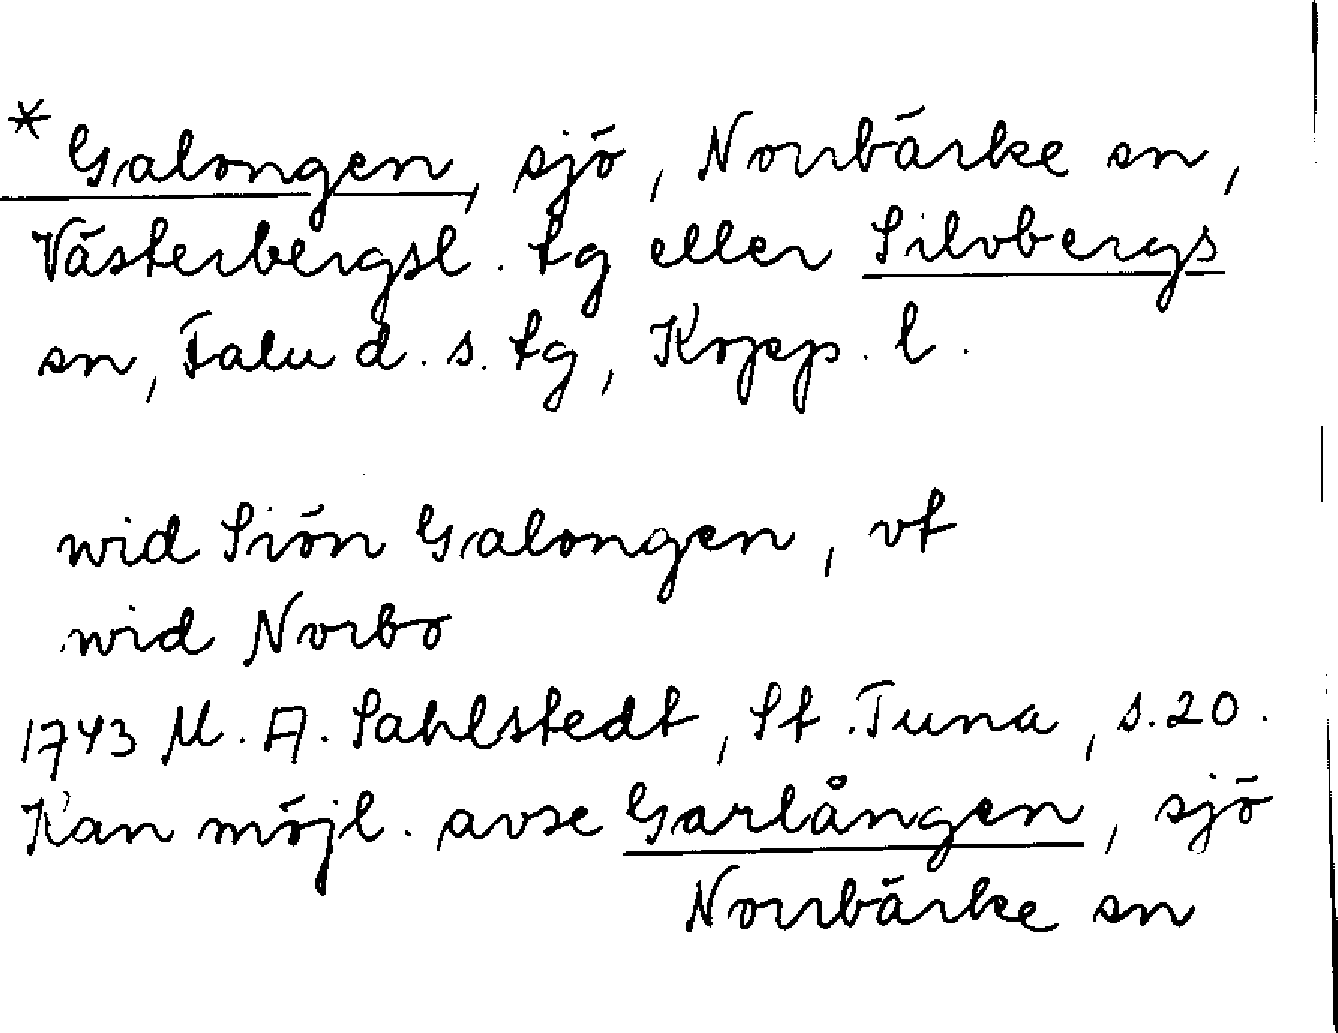 * Galongen, sjö, Norrbärke sn,
Västerbergsl. tg eller Silvbergs
sn, Falu d. s. tg, Kopp. l.
wid Siön Galongen, vt
wid Norbo
1743 M. A. Sahlstedt, St. Tuna, s. 20.
Kan möjl. avse Garlången, sjö
Norrbärke sn